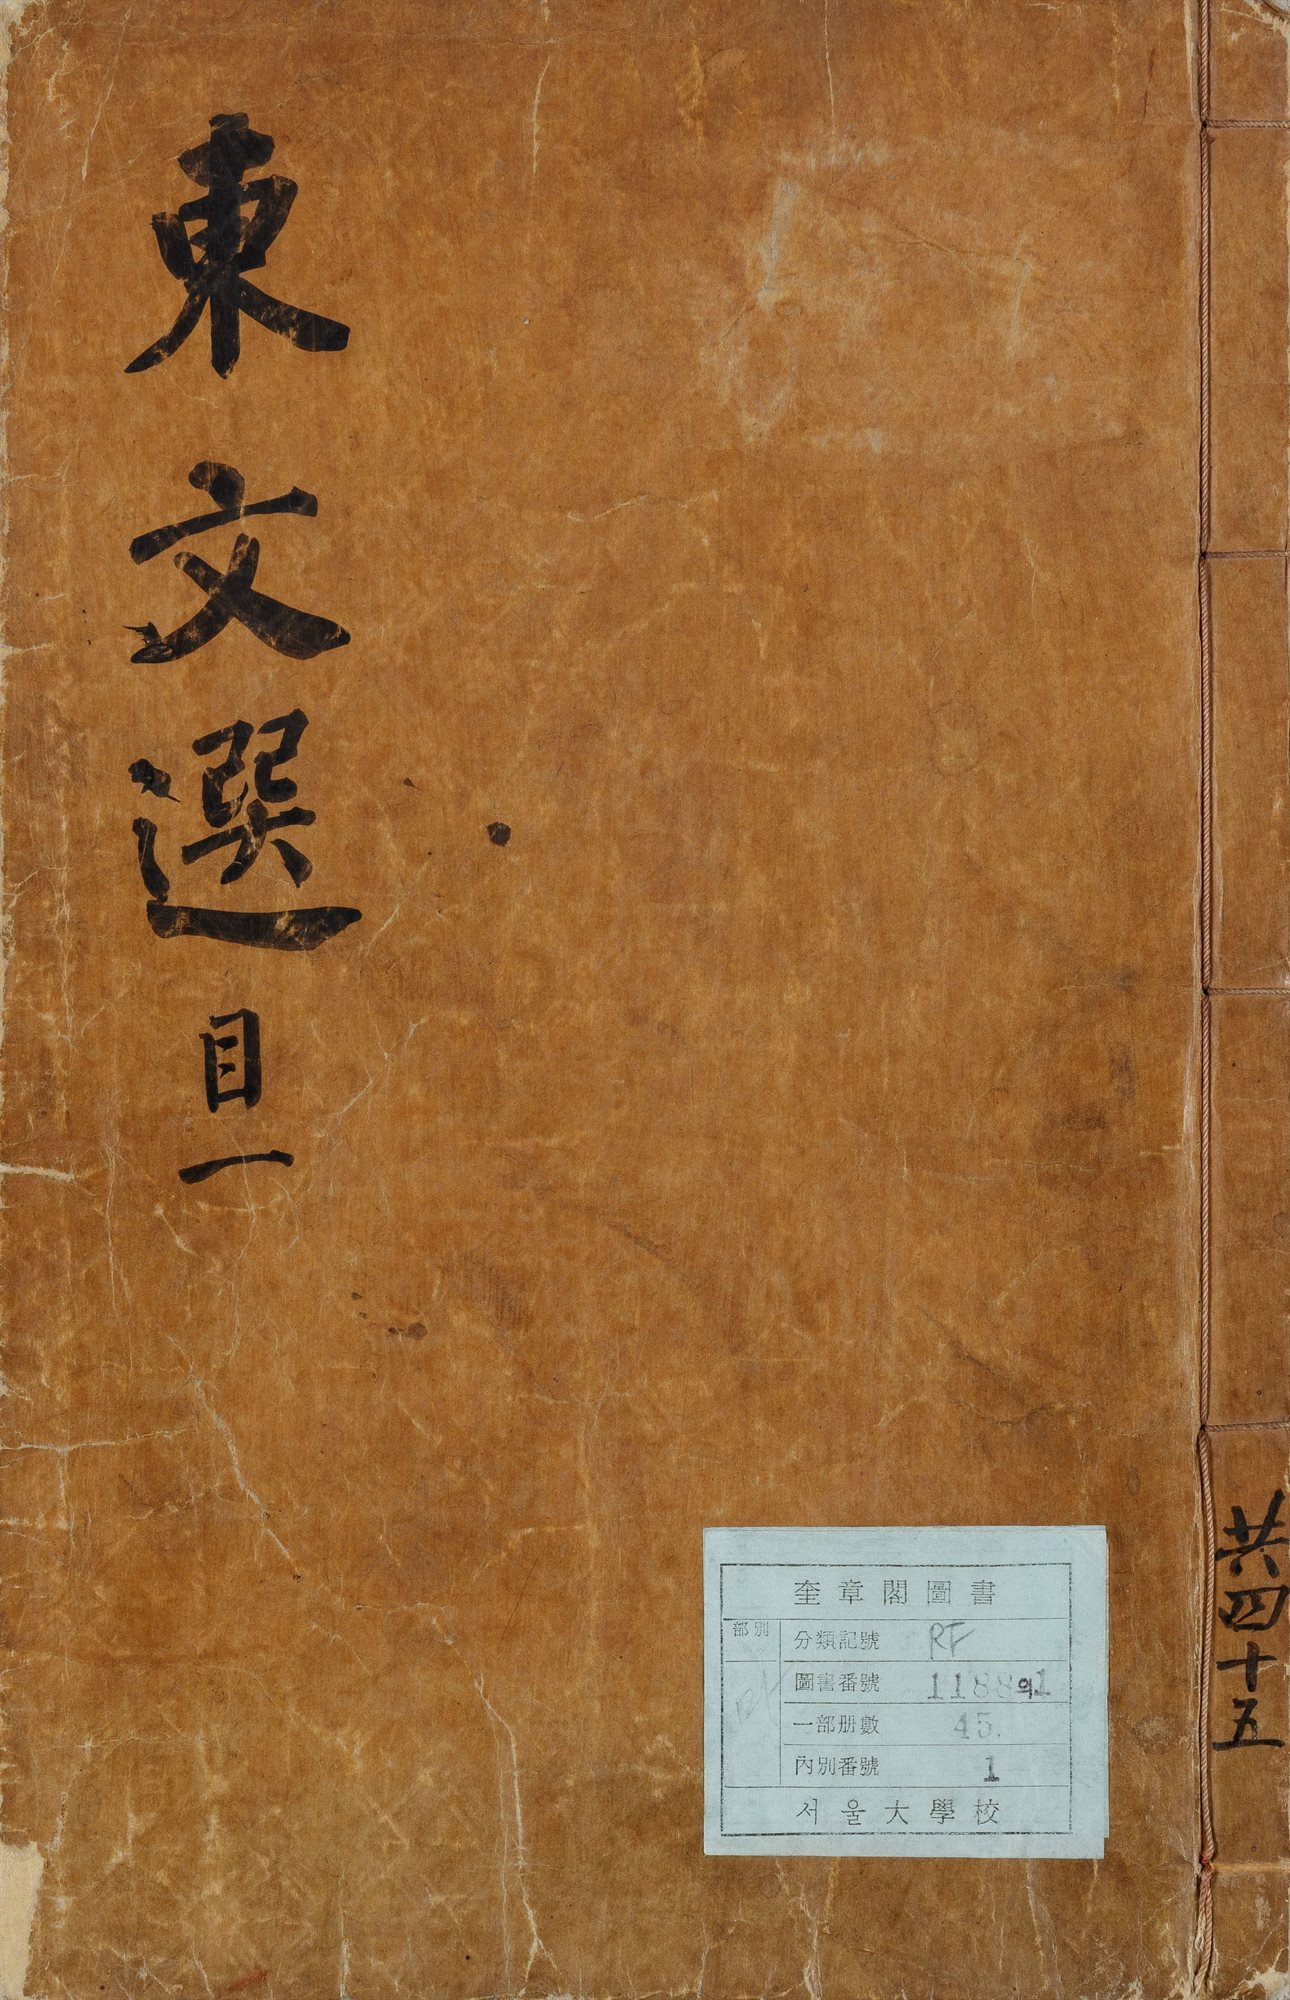 東文選 目一
共四十五
奎章閣圖書
部別
分類記號 RF
圖書番號 11889의1
一部册數 45.
內別番號 1
서울大學校